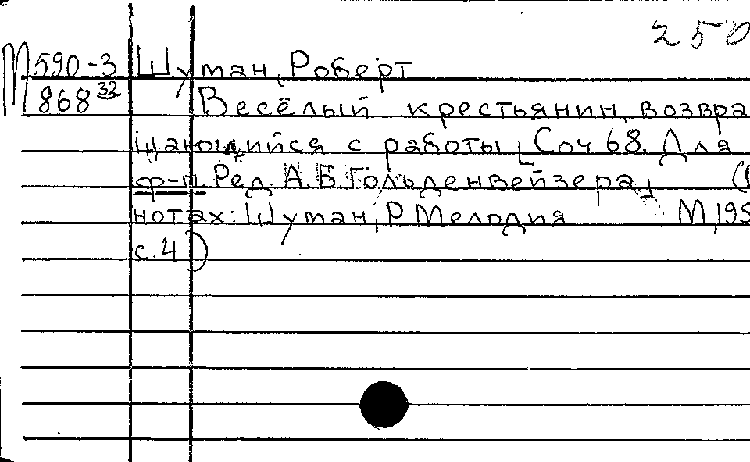 250
М590-3 Шуман, Роберт
868 32 Весёлый крестьянин, возвра
щающийся с работы, [Соч 68. Для
ф-п. Ред. А. Б. Гольденвейзера,
нотах: Шуман, Р. Мелодия М, 195
с. 4)